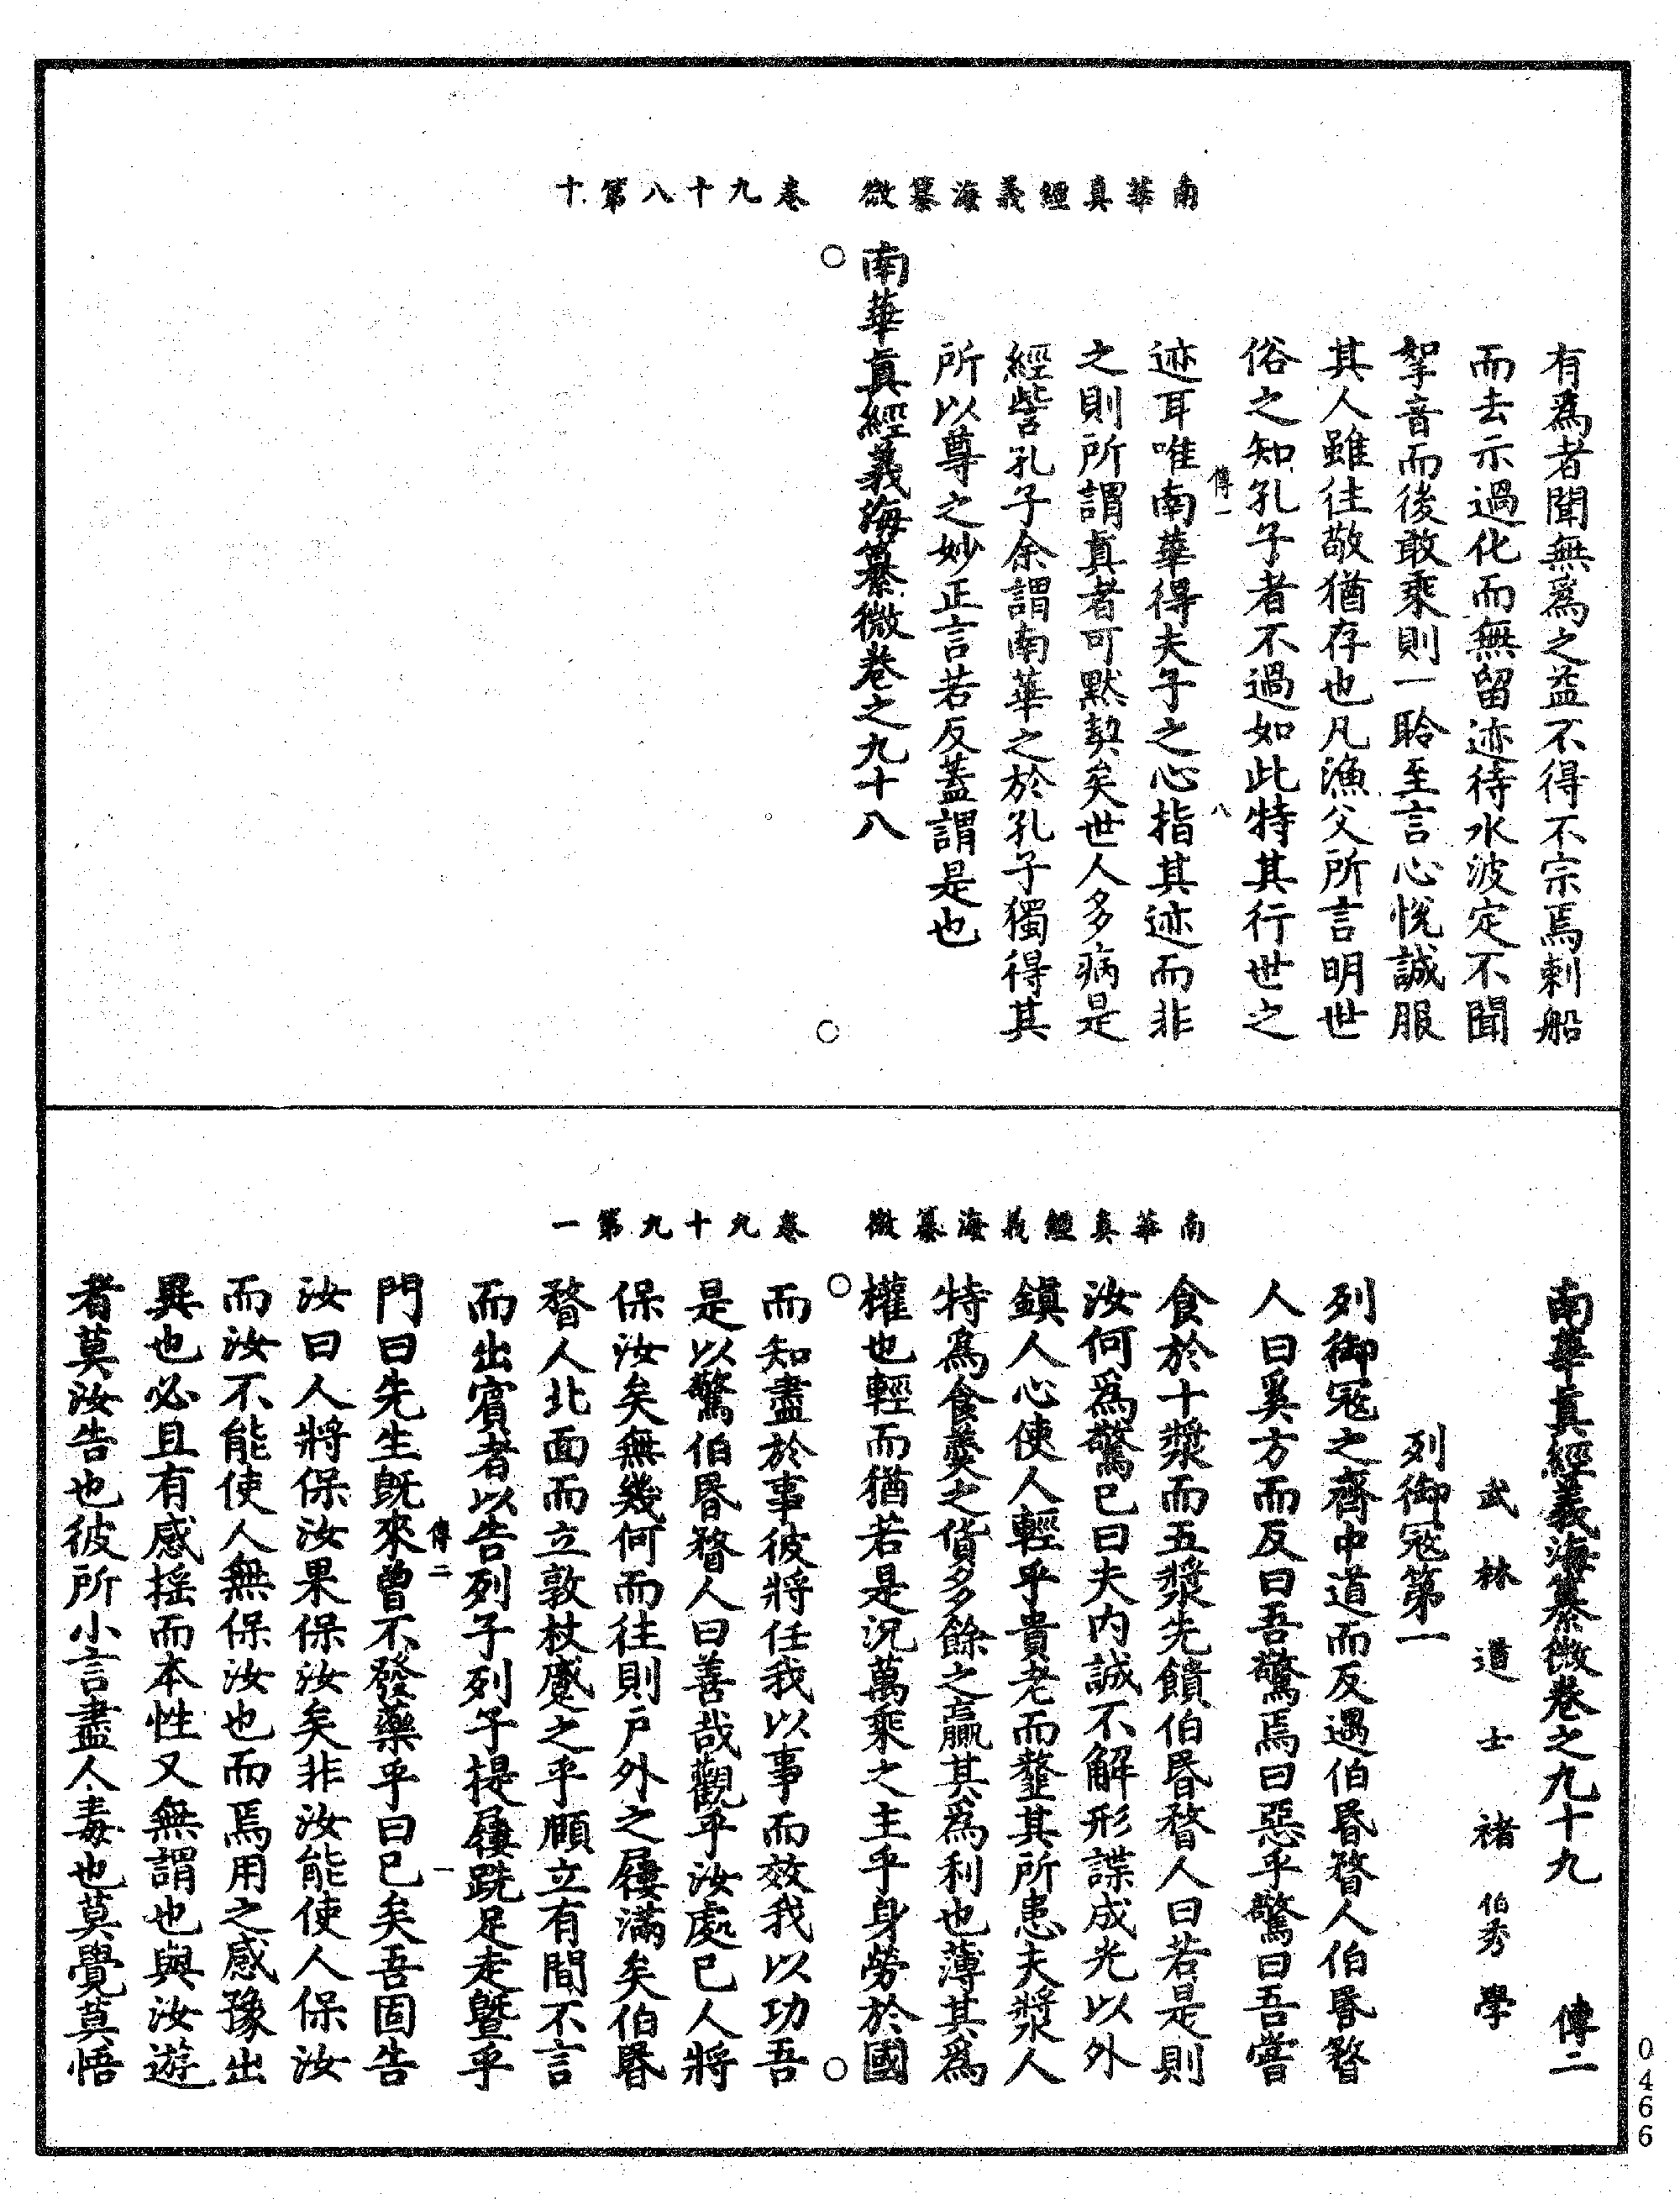 南華真經義海纂微　卷九十八第十
有爲者聞無爲之益不得不宗焉刺船
而去示過化而無留迹待水波定不聞
挐音而後敢乘則一聆至言心悅誠服
其人雖往敬猶存也凡漁父所言明世
俗之知孔子者不過如此特其行世之
傳一　八
迹耳唯南華得夫子之心指其迹而非
之則所謂真者可默契矣世人多病是
經訾孔子余謂南華之於孔子獨得其
所以尊之妙正言若反蓋謂是也
南華真經義海纂微卷之九十八
南華真經義海纂微　卷九十九第一
南華真經義海纂微卷之九十九　傳二
武林道士褚伯秀學
列御冦第一
列御冦之齊中道而反遇伯昬瞀人伯昬瞀
人曰奚方而反曰吾驚焉曰惡乎驚曰吾嘗
食於十漿而五漿先饋伯昬瞀人曰若是則
汝何爲驚已曰夫內誠不解形諜成光以外
鎮人心使人輕乎貴老而韲其所患夫漿人
特爲食羹之貨多餘之贏其爲利也薄其爲
權也輕而猶若是况萬乘之主乎身勞於國
而知盡於事彼將任我以事而效我以功吾
是以驚伯昬瞀人曰善哉觀乎汝處已人將
保汝矣無幾何而往則戶外之屨滿矣伯昬
瞀人北面而立敦杖蹙之乎頤立有間不言
而出賓者以告列子列子提屨跣足走曁乎
傳二　一
門曰先生旣來曾不發藥乎曰已矣吾固告
汝曰人將保汝果保汝矣非汝能使人保汝
而汝不能使人無保汝也而焉用之感豫出
異也必且有感揺而本性又無謂也與汝遊
者莫汝告也彼所小言盡人毒也莫覺莫悟
0466